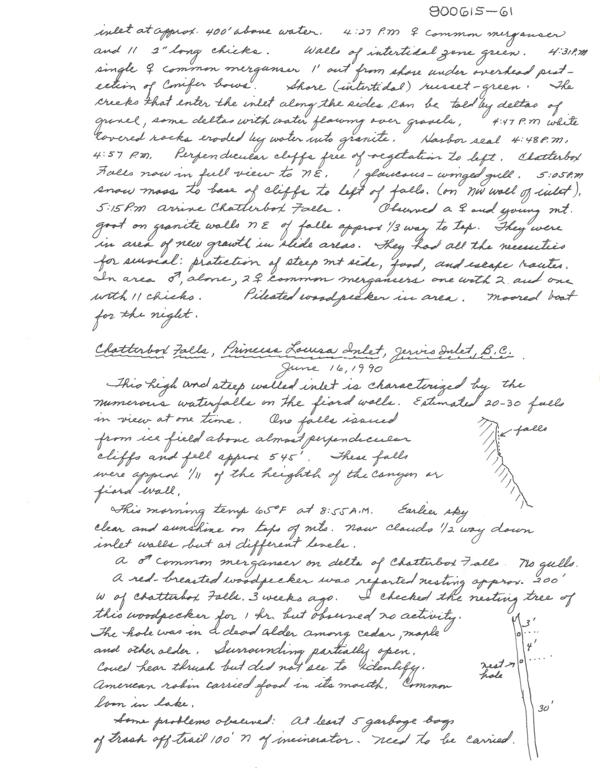 900615-61
inlet at approx. 400' above water. 4:27 P.M ♀ common merganser
and 11 2" long chicks. Walls of intertidal zone green. 4:31 P.M
single ♀ common merganser 1' out from shore under overhead prot-
ection of Conifer bows. Shore (intertidal) russet-green. The
creeks that enter the inlet along the sides can be told by deltas of
gravel, some deltas with water flowing over gravels. 4:47 P.M white
covered rocks eroded by water into granite. Harbor seal 4:48 P.M.
4:57 P.M. Perpendicular cliffs free of vegetation to left. Chatterbox
Falls now in full view to NE. 1 glaucous-winged gull. 5:05 P.M
snow mass to base of cliffs to left of falls. (on NW wall of inlet).
5:15 P.M arrive Chatterbox Falls. Observed a ♀ and young mt.
goat on granite walls NE of falls approx 1/3 way to top. They were
in area of new growth in slide areas. They had all the necessities
for survival: protection of steep mt side, food, and escape routes.
In area ♂, alone, 2 ♀ common mergansers one with 2 and one
with 11 chicks. Pileated woodpecker in area. Moored boat
for the night.
Chatterbox Falls, Princess Louisa Inlet, Jervis Inlet, B.C.
June 16, 1990
This high and steep walled inlet is characterized by the
numerous waterfalls on the fiord walls. Estimated 20-30 falls
in view at one time. One falls issued
from ice field above almost perpendicular
cliffs and fell approx 545'. These falls
were approx 1/11 of the heighth of the canyon or
fiord wall.
falls
This morning temp 65°F at 8:55 A.M. Earlier sky
clear and sunshine on tops of mts. Now clouds 1/2 way down
inlet walls but at different levels.
A ♂ common merganser on delta of Chatterbox Falls. No gulls.
A red-breasted woodpecker was reported nesting approx. 200'
W of Chatterbox Falls. 3 weeks ago. I checked the nesting tree of
this woodpecker for 1 hr. but observed no activity.
The hole was in a dead alder among cedar, maple
and other alder. Surrounding partially open.
Could hear thrush but did not see to identify.
American robin carried food in its mouth. Common
loon in lake.
3'
4'
nest hole
30'
Some problems observed: At least 5 garbage bags
of trash off trail 100' N of incinerator. Need to be carried.